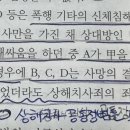 등은 폭행 기타의 신체침해
사망을 가진 채 상대방인
싸움을 하던 중 A가 甲을
경우에 B, C, D는 사망의 결
었더라도 상해치사죄의 죄
상해치사